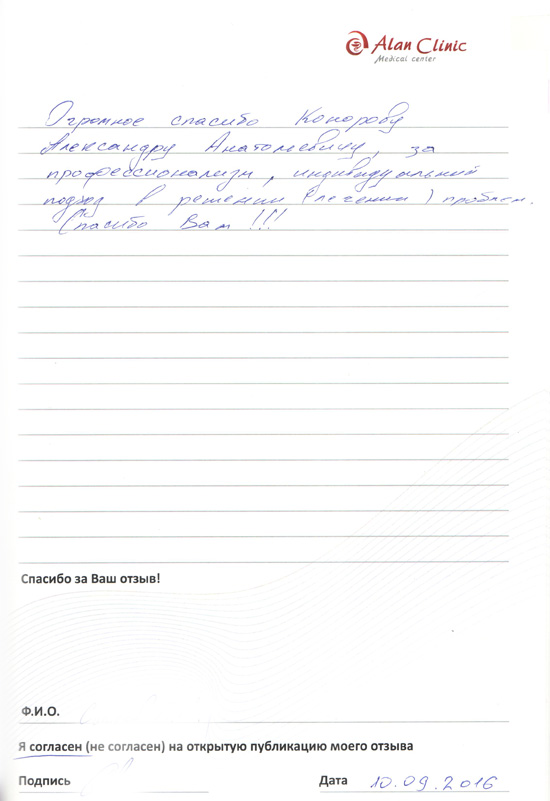 Alan Clinic
Medical center
Огромное спасибо Конорову
Александру Анатольевичу, за
профессионализм, индивидуальный
подход в решении (лечении) проблем.
Спасибо Вам !!!
Спасибо за Ваш отзыв!
Ф.И.О.
Я согласен (не согласен) на открытую публикацию моего отзыва
Подпись Дата 10.09.2016